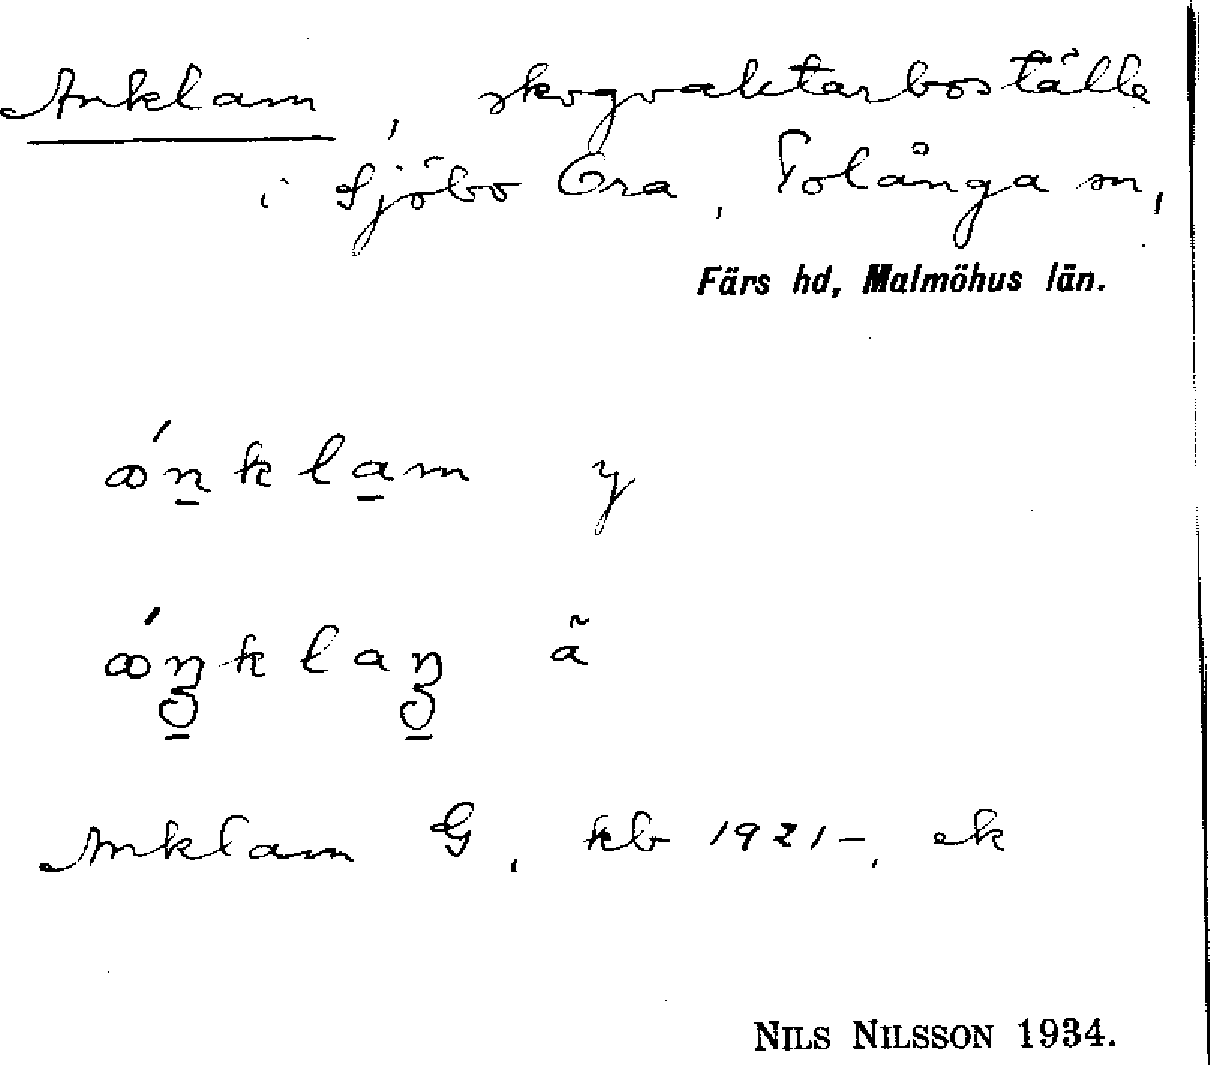 Anklam, skogvaktarboställe
i Sjöbo Ora, Tolånga sn,
Färs hd, Malmöhus län.
ánklam y
áŋklaŋ ã
Anklam G, kb 1921-, ek
NILS NILSSON 1934.